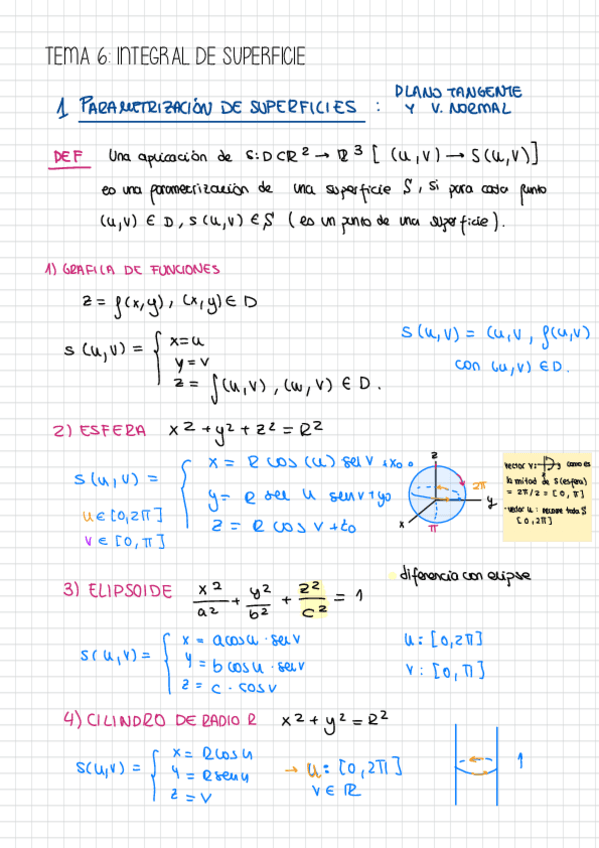 TEMA 6: INTEGRAL DE SUPERFICIE
1 PARAMETRIZACIÓN DE SUPERFICIES : PLANO TANGENTE
Y V. NORMAL
DEF Una aplicación de S: D ⊂ R² → R³ [ (u,v) → S(u,v)]
es una parametrización de una superficie S, si para cada punto
(u,v) ∈ D, s(u,v) ∈ S (es un punto de una superficie).
1) GRAFICA DE FUNCIONES
z = f(x,y), (x,y) ∈ D
s(u,v) = { x=u
y=v
z= f(u,v), (u,v) ∈ D.
S(u,v) = (u,v, f(u,v)
con (u,v) ∈ D.
2) ESFERA x² + y² + z² = R²
s(u,v) = { x = R cos(u) sen v + x₀
y = R sen u sen v + y₀
z = R cos v + z₀
u ∈ [0,2π]
v ∈ [0,π]
z
2π
y
x
π
vector v: como es
la mitad de S(esfera)
= 2π/2 = [0,π]
-vector u: recorre toda S
[0,2π]
3) ELIPSOIDE x²/a² + y²/b² + z²/c² = 1
diferencia con elipse
s(u,v) = { x = a cos u · sen v
y = b cos u · sen v
z = c · cos v
u: [0,2π]
v: [0,π]
4) CILINDRO DE RADIO R x² + y² = R²
S(u,v) = { x = R cos u
y = R sen u
z = v
→ u: [0,2π]
v ∈ R
1